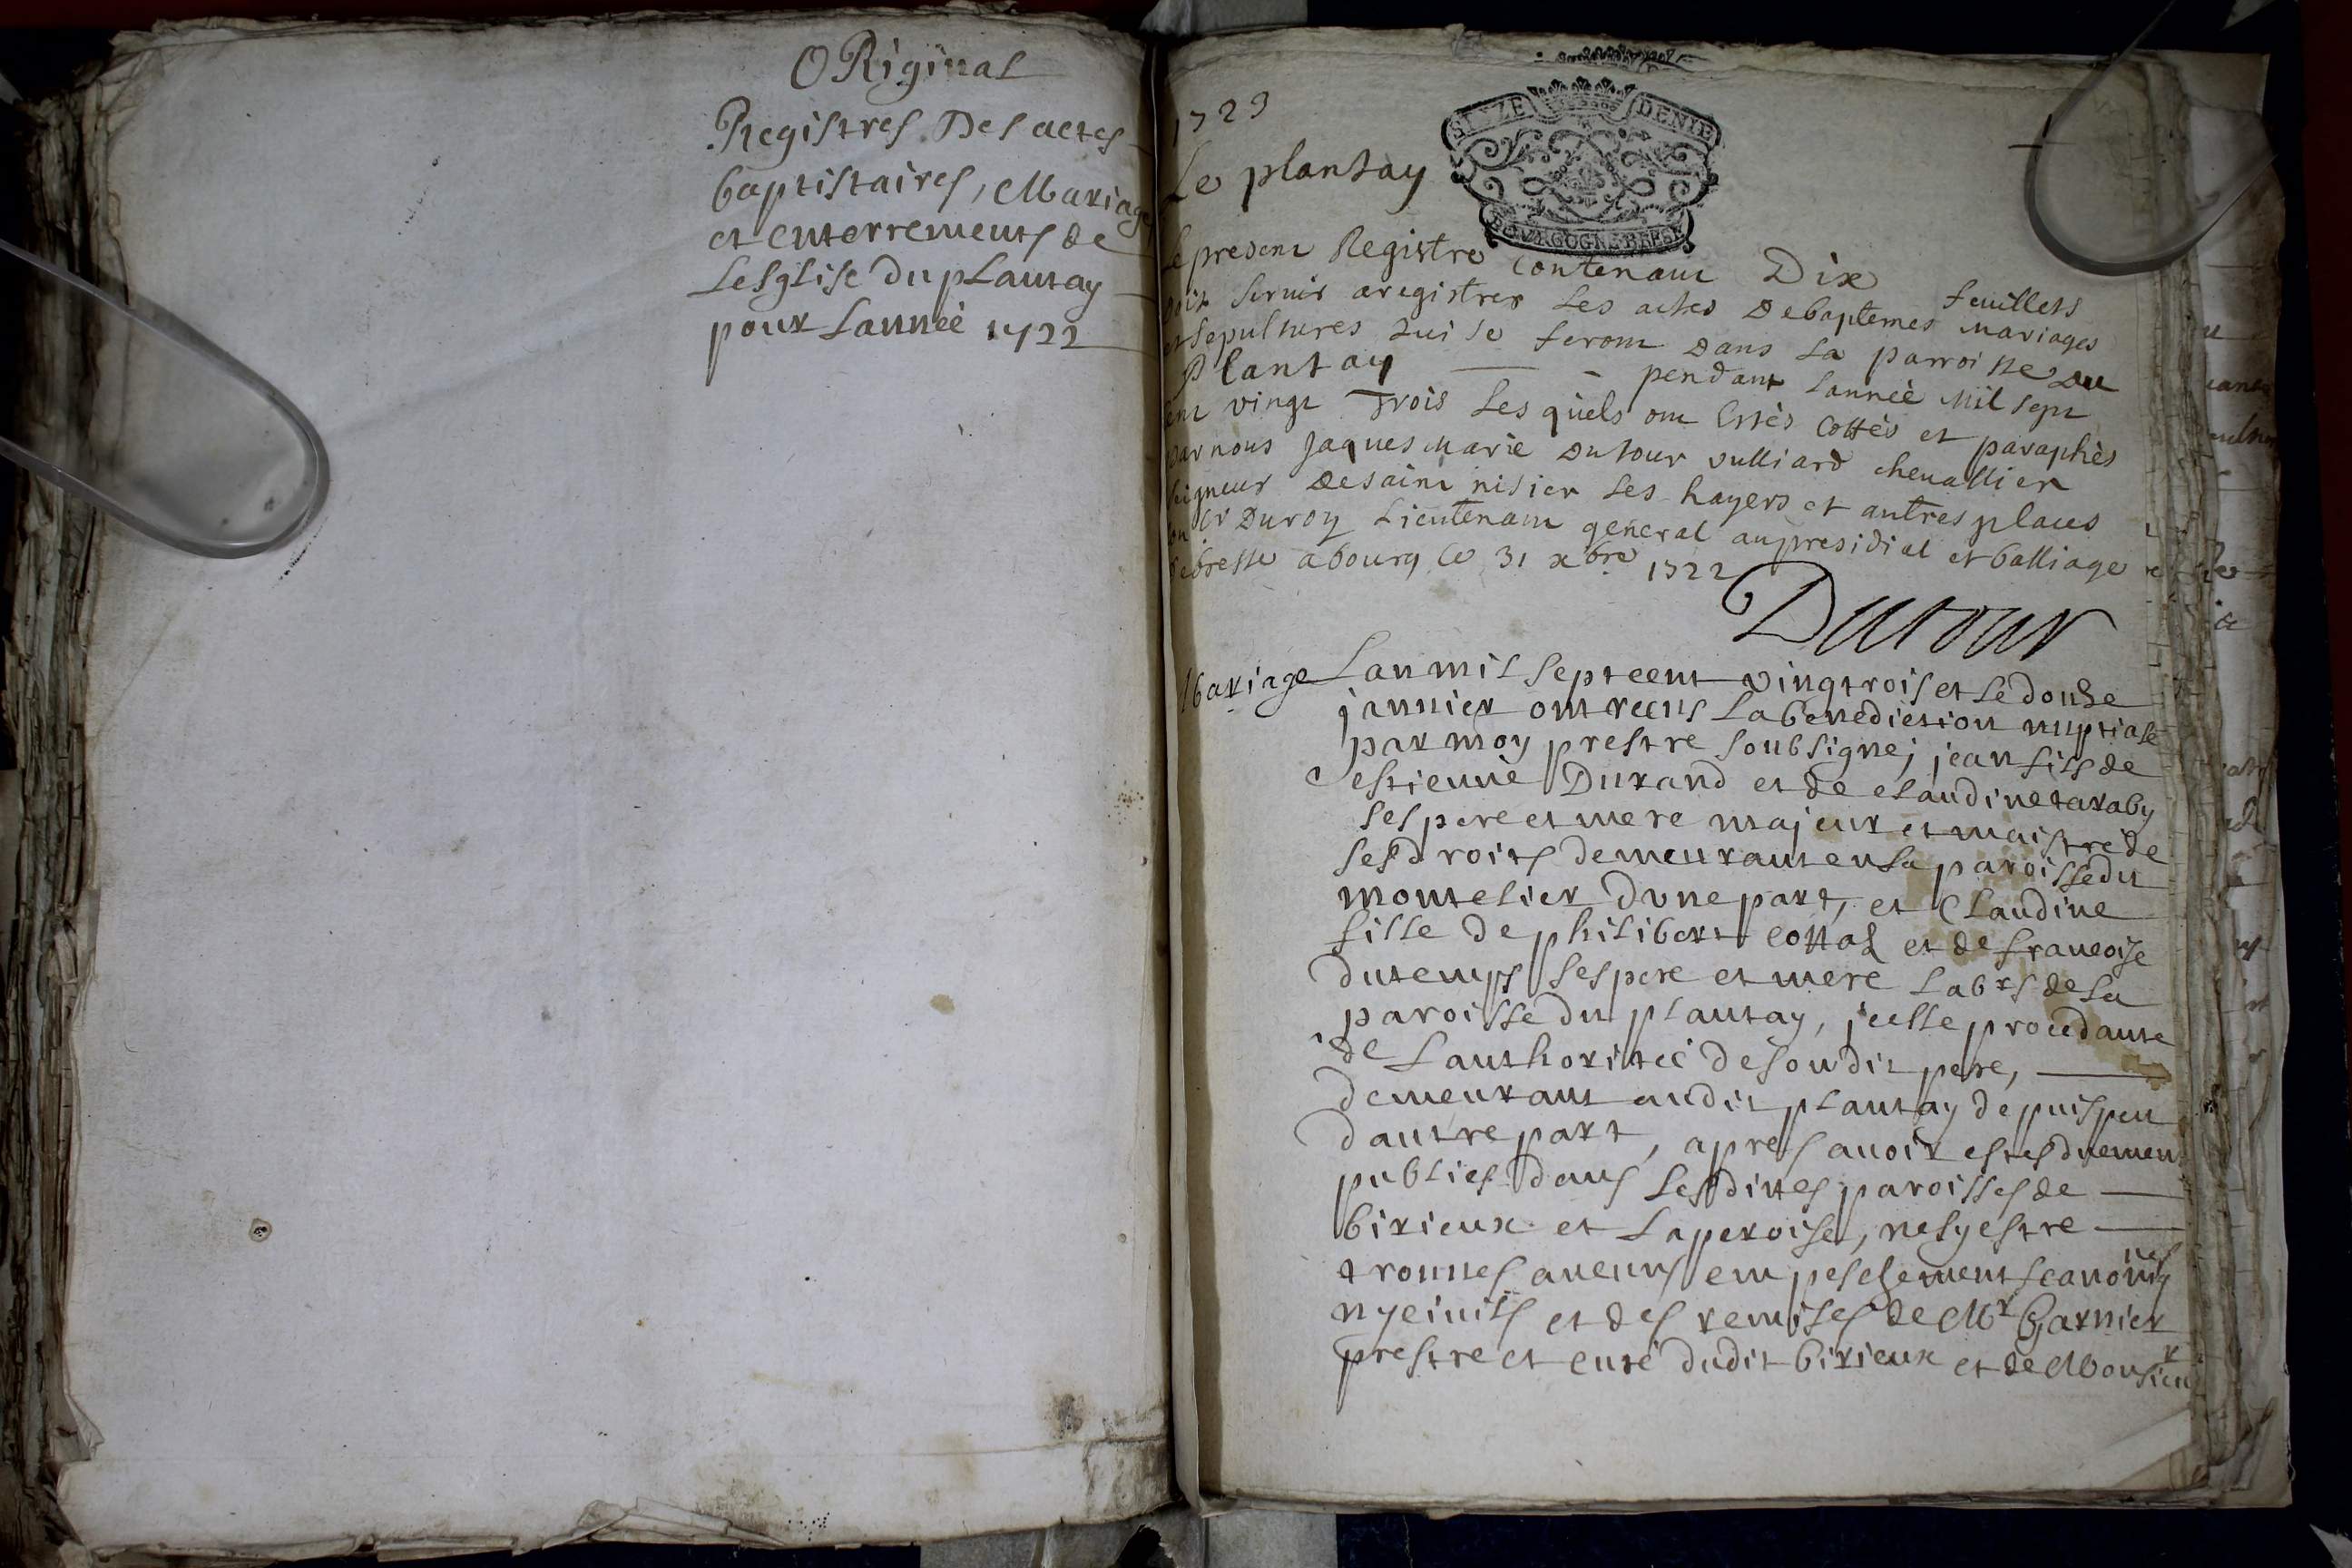 ORiginal
Registres Des actes
baptistaires, Mariage
et enterrements de
Lesglise du plantay
pour Lanneé 1722
1723
SEIZE DENIE
BOVRGOGNE BRESSE
Le plantay
Le present Registre contenant Dix feuillets
doit servir aregistrer Les actes Debaptemes mariages
et sepultures qui se feront dans La parroisse Du
Plantay pendant Lanneé Mil sept
cent vingt Trois Lesquels ont Estés Cottés et paraphés
par nous Jaques Marie Dutour vulliard chevallier
seigneur Desaint nisier Les hayers et autres places
Duroy Lieutenant general aupresidial et balliage
debresse abourg le 31 xbre 1722
Dutour
Mariage Lan mil septcent vingtrois et Le douze
janvier ont receus La benediction nuptiale
par moy prestre soubsigné; jean fils de
estienne Durand et de claudine taraby
ses pere et mere majeur et maistre de
ses droits demeurant en La paroisse du
montelier dune part, et Claudine
fille de philibert cottal et de francoise
dutemps ses pere et mere Labrs de La
paroisse du plantay, jcelle procedante
de Lauthoriteé desondit pere,
demeurant audit plantay depuis peu
dautre part, apres avoir estes duement
publies dans Lesdittes paroisses de
birieux et Laperoise, ne sy estre
trouves aucuns empeschements canoniq
ues
ny civils et des remises de Mr Garnier
prestre et curé dudit birieux et de Monsieur